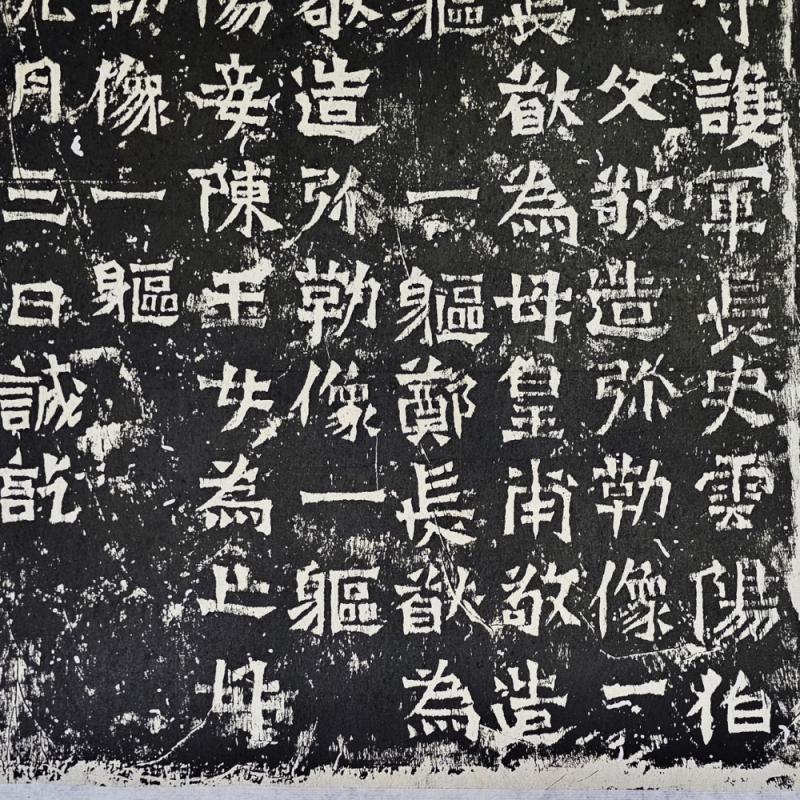 守護軍長史雲陽伯
亡父敬造弥勒像一
長猷為母皇甫敬造
軀一軀鄭長猷為
敬造弥勒像一軀
陽妾陳玉女為亡母
勒像一軀
九月三日誠訖